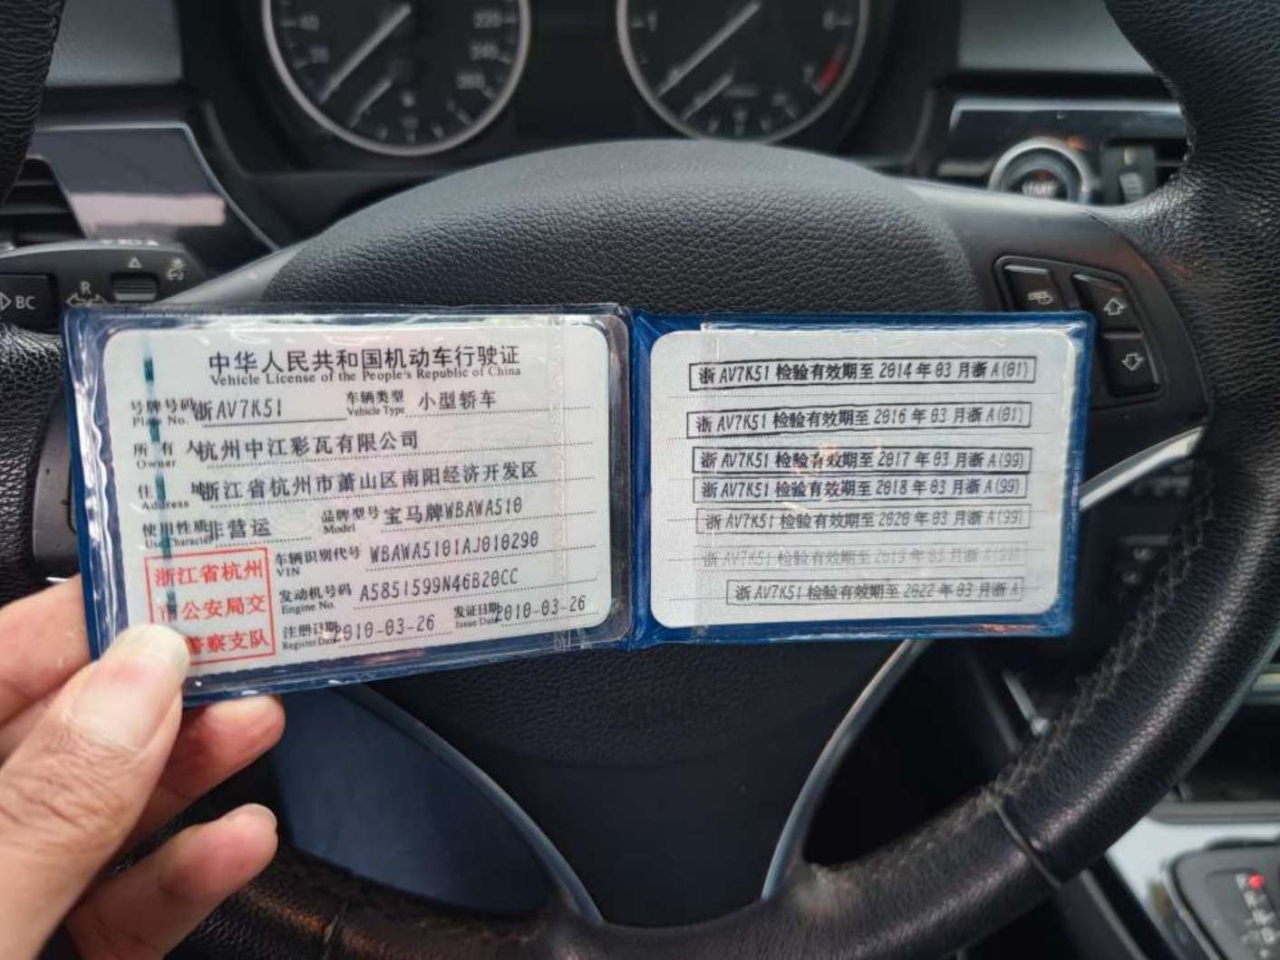 BC
R
START
中华人民共和国机动车行驶证
Vehicle License of the People's Republic of China
号牌号码 浙AV7K51 车辆类型 小型轿车
Plate No. Vehicle Type
所有人 杭州中江彩瓦有限公司
Owner
住址 浙江省杭州市萧山区南阳经济开发区
Address
使用性质 非营运 品牌型号 宝马牌WBAWA510
Use Character Model
车辆识别代号 WBAWA5101AJ010290
VIN
发动机号码 A5851599N46B20CC
Engine No.
注册日期 2010-03-26 发证日期 2010-03-26
Register Date Issue Date
浙江省杭州
市公安局交
警察支队
浙AV7K51 检验有效期至 2014年03月浙A(01)
浙AV7K51 检验有效期至 2016年03月浙A(01)
浙AV7K51 检验有效期至 2017年03月浙A(99)
浙AV7K51 检验有效期至 2018年03月浙A(99)
浙AV7K51 检验有效期至 2020年03月浙A(99)
浙AV7K51 检验有效期至 2019年03月浙A(99)
浙AV7K51 检验有效期至 2022年03月浙A